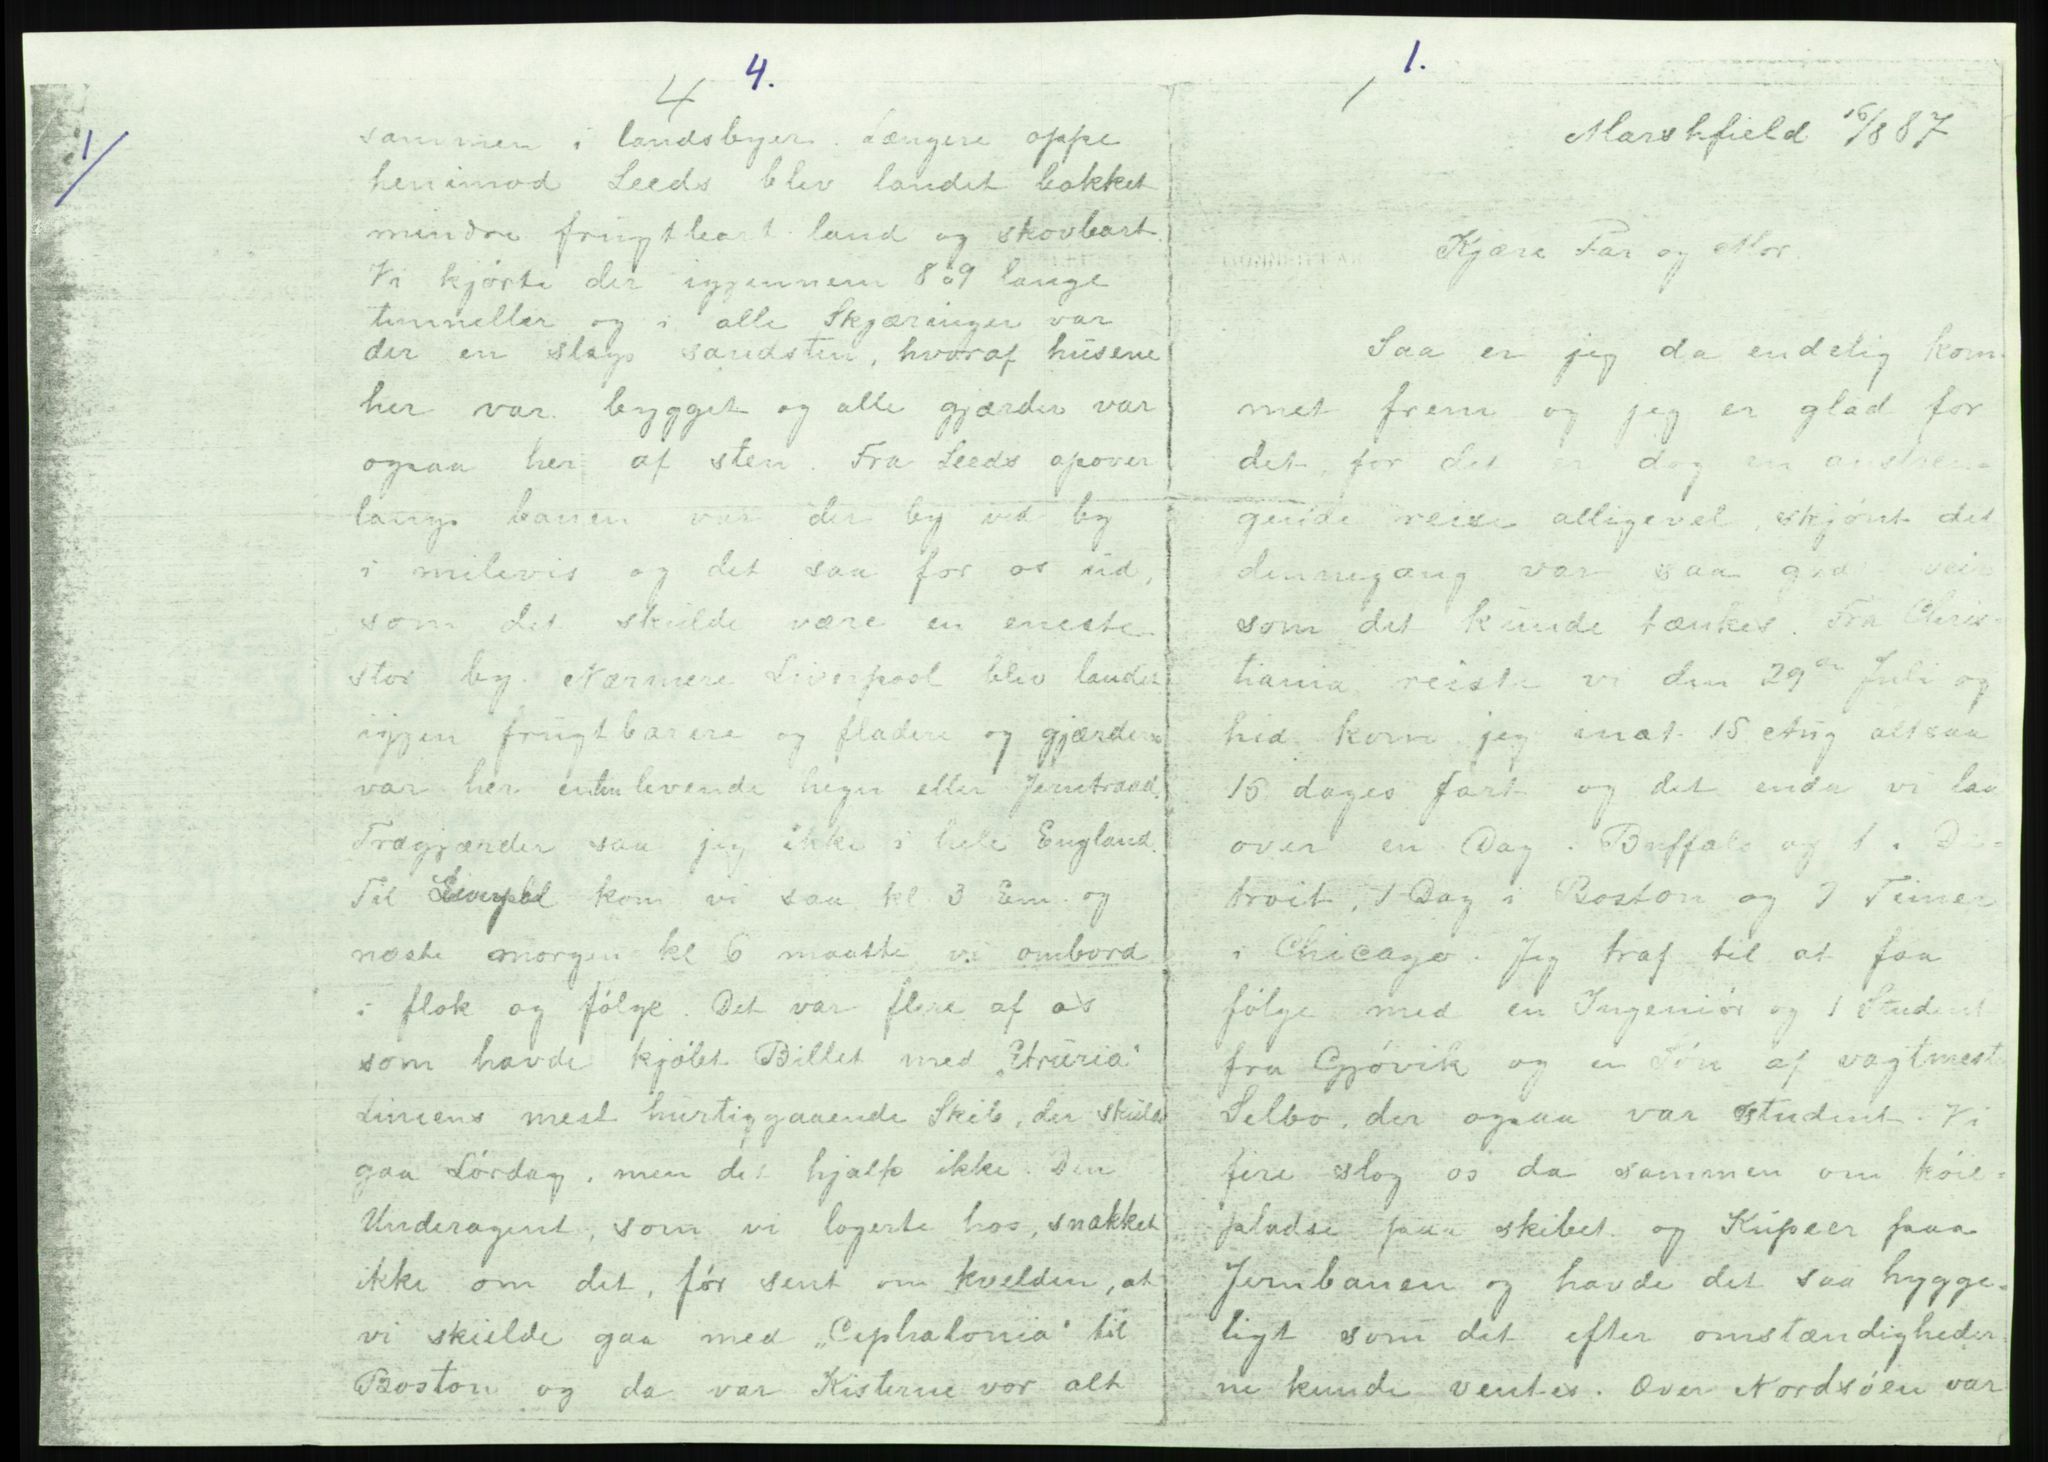 1/
4
4.
sammen i landsbyer. Længere oppe
henimod Leeds blev landet bakket
mindre frugtbart land og skovbart.
Vi kjørte der igjennem 8 à 9 lange
tunneller og i alle Skjæringer var
der en slags sandsten, hvoraf husene
her var bygget og alle gjærder var
ogsaa her af sten. Fra Leeds opover
langs banen var der by ved by
i milevis og det saa for os ud,
som det skulde være en eneste
stor by. Nærmere Liverpool blev landet
igjen frugtbarere og fladere og gjærdene
var her enten levende hegn eller Jerntraad.
Trægjærder saa jeg ikke i hele England.
Til Liverpool kom vi saa kl 3 Em og
næste morgen kl 6 maatte vi ombord
i flok og følge. Det var flere af os
som havde kjøbt Billet med „Etruria“
Liniens mest hurtiggaaende Skib, der skulde
gaa Lørdag, men det hjalp ikke. Den
Underagent, som vi logerte hos, snakket
ikke om det, før sent om kvelden, at
vi skulde gaa med „Cephalonia“ til
Boston og da var Kisterne vor alt
1.
Marshfield 16/8 87
Kjære Far og Mor.
Saa er jeg da endelig kom-
met frem og jeg er glad for
det, for det er dog en anstren-
gende reise alligevel, skjønt det
dennegang var saa god veir
som det kunde tænkes. Fra Chris-
tiania reiste vi den 29de Juli og
hid kom jeg inat 15 Aug altsaa
16 dages fart og det enda vi laa
over en Dag i Buffalo og 1 i De-
troit, 1 Dag i Boston og 7 Timer
i Chicago. Jeg traf til at faa
følge med en Ingeniør og 1 Student
fra Gjøvik og en Søn af vagtmest.
Selbo, der ogsaa var student. Vi
fire slog os da sammen om køie-
pladse paa skibet og Kupeer paa
Jernbanen og havde det saa hygge-
ligt som det efter omstændigheder-
ne kunde ventes. Over Nordsøen var